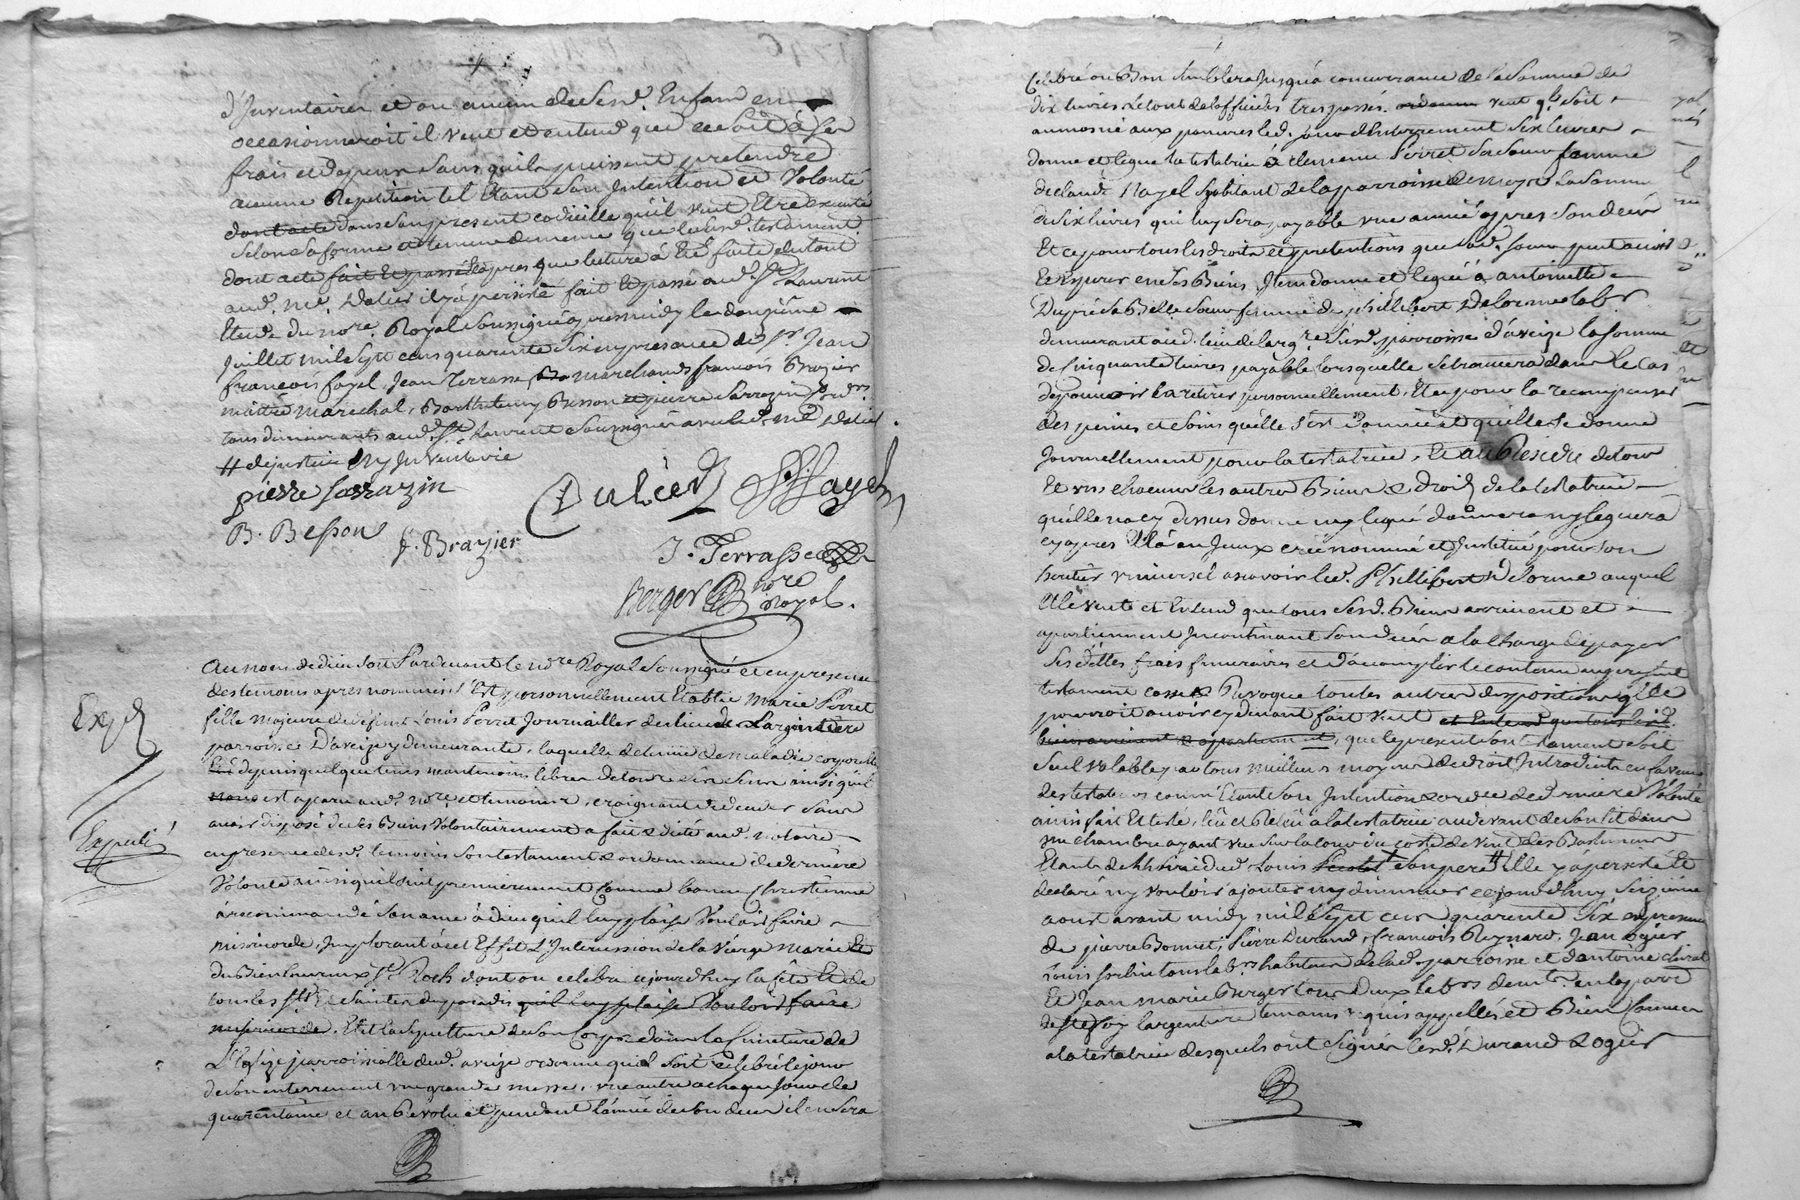 d'Inventaires et ou aucun de Sesd. Enfans en
occasionneroit il veut et entend que ce soit à ses
frais et depens sans quils puissent pretendre
aucune Repetition tel Etant Son Intention et Volonté
dont acte dans son present codicille qu'il veut Etre executé
selon sa forme et teneur de meme que sond. testament
dont acte fait et passé apres que lecture à Eté faite du tout
aud. me Dulier il y à persisté fait et passé aud. St Laurent
Etude du nore Royal Soussigné apres midy le douzième
Juillet mil sept cens quarente six en presance de Sr Jean
françois fayel, Jean Terrasse marchands francois Brazier
maitre marechal, Barthelemy Besson et pierre Sarrazin
tous demeurants aud. St Laurent Soussignés avec led. me Dulier
# de justice ny Inventaire
pierre sarrazin
Dulier fayel
B. Besson
f. Brazier
J. Terrasse
Berger nore Royal.
Au nom de dieu soit Pardevant le nore Royal Soussigné et en presence
des temoins apres nommés s'Est personnellement Etablie Marie Perret
fille majeure de defunt Louis Perret Journallier du lieu de Largentiere
parroisse D'aveize y demeurante, laquelle detenue de maladie corporelle
depuis quelque tems neantmoins libre de tous ses sens ainsi quil
nous est aparu aud. nore et temoins, craignant de deceder sans
avoir disposé de ses Biens Volontairement a fait & dicté aud. notaire
Exp
Expedié
en presence desd. temoins son testament & ordonnance de derniere
Volonté ainsi quil suit premierement comme bonne Chrétienne
à recommandé son ame à dieu quil luy plaise Vouloir faire
misericorde, Implorant à cet Effet L'Intercession de la Vierge Marie Et
du Bienheureux St Roch dont on celebre aujourd'huy la fête Et de
tous les Sts & saintes du paradis quil luy plaise Vouloir faire
misericorde. Elit la sepulture de son Corps dans le Cimetière de
L'Eglize parroissialle dud. aveize ordonne quil soit celebré le jour
de son enterrement une grande messe, une autre a chaque jour de la
quarentaine et an Revolu et pendant l'année de son deces il en sera
Celebré ou Bon Semblera Jusqu'a concurrance de la Somme de
dix livres le tout de l'office des trespassés. veut ql soit
aumosné aux pauvres led. jour d'Enterrement Six livres
donne et legue la testatrice à Clemence Perret Sa Soeur femme
de Claude Nayel habitant de la parroisse de meys La Somme
de six livres qui luy sera payable une année apres son decés
Et ce pour tous les droits et pretentions que sad. soeur peut avoir
Et Esperer en ses Biens, Item donne et legue à antoinette
Dupré sa Belle Soeur femme de phillibert Delorme labr
demeurant aud. lieu de Largre susd. parroisse d'aveize la somme
de Cinquante livres payable lorsquelle se trouvera dans le cas
de pouvoir la retirer personnellement, Et ce pour la recompenser
des peines et soins quelle s'est Donnée et quelle se donne
Journellement pour la testatrice, Et au Résidu de tous
Et uns chacuns les autres Biens & droits de la testatrice
quelle na cy dessus donné ny legué donnera ny leguera
cy apres Elle à en Iceux créé nommé et Institué pour son
heritier universel a savoir led. Phillibert Delorme auquel
Elle veut et Entend que tous sesd. Biens arrivent et
apartiennent Incontinant son decés à la charge de payer
Ses dettes, frais funeraires et D'acomplir le contenu au present
testament casse & Revoque toutes autres dispositions qlle
pourroit avoir cy devant fait veut et entend que tous sesd.
biens arrivent & apartiennent, que le present Son testament soit
Seul Valable par tous meilleurs moyens de droit Introduits en faveurs
des testateurs comme Etant Son Intention & ordre de derniere Volonté
ainsi fait Et testé, lû et Relû à la testatrice au devant de son lit dans
une chambre ayant vue sur la cour du costé de vent des Batimens
Etant de l'hoirie dud. Louis Perret son pere Elle y à persisté Et
declaré ny vouloir ajouter ny diminuer ce jourdhuy Seizieme
aoust avant midy mil sept cens quarente Six en presence
de pierre Bonnet, Pierre Durand, francois Reynard, Jean Ogier
tous labrs habitans de lad. parroisse et d'antoine
Et Jean marie Berger tous deux labrs demts en la parre
de Ste foy largentiere temoins requis appellés et Bien Connus
a la testatrice desquels ont Signé lesd. Durand & Ogier